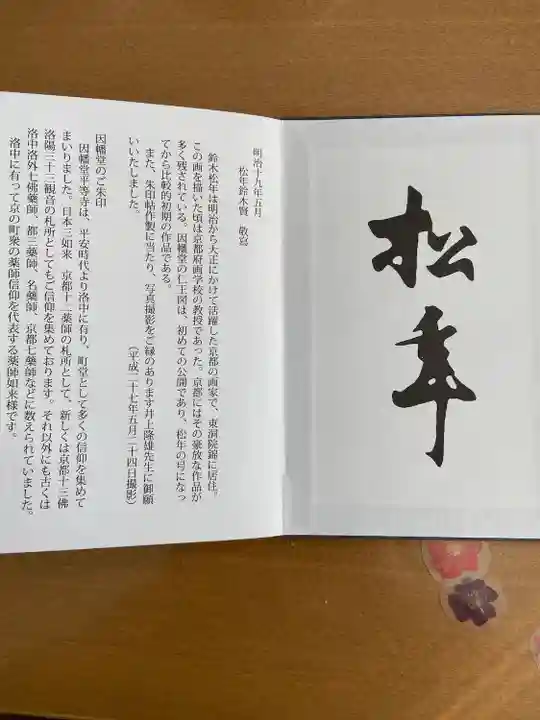 松年
明治十九年五月
松年鈴木賢 敬寫
鈴木松年は明治から大正にかけて活躍した京都の画家で、東洞院錦に居住。
この画を描いた頃は京都府画学校の教授であった。京都にはその豪放な作品が
多く残されている。因幡堂の仁王図は、初めての公開であり、松年の号になっ
てから比較的初期の作品である。
また、朱印帖作製に当たり、写真撮影をご縁のあります井上隆雄先生に御願
いいたしました。
（平成二十七年五月二十四日撮影）
因幡堂のご朱印
因幡堂平等寺は、平安時代より洛中に有り、町堂として多くの信仰を集めて
まいりました。日本三如来 京都十二薬師の札所として、新しくは京都十三佛
洛陽三十三観音の札所としてもご信仰を集めております。それ以外にも古くは
洛中洛外七佛薬師、都三薬師、名薬師、京都七薬師などに数えられていました。
洛中に有って京の町衆の薬師信仰を代表する薬師如来様です。